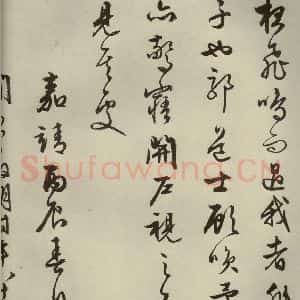 夜飛鳴而過我者
子也耶道士顧笑予
亦驚寤開戶視之
見其處
嘉靖丙辰春
Shufawang.CN